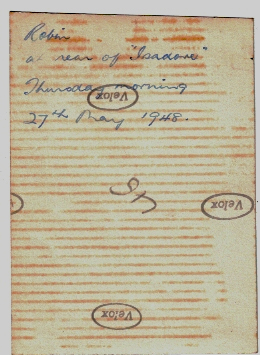 Robin
at rear of "Isadore"
Thursday morning
27th May 1948.
Velox
Velox
Velox